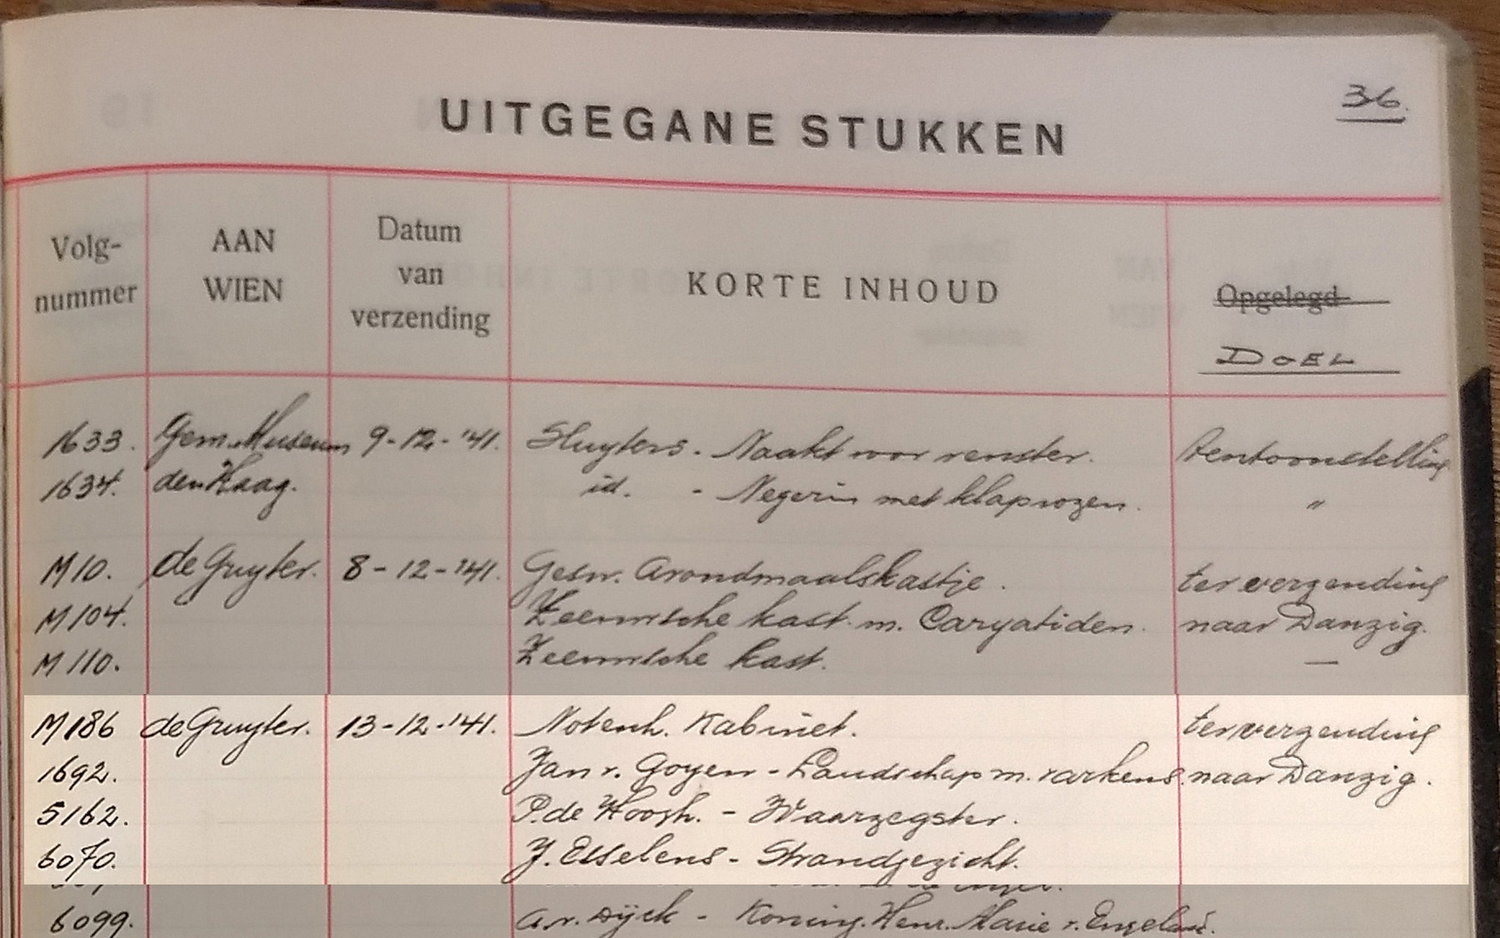 36.
UITGEGANE STUKKEN
Volg-
nummer
AAN
WIEN
Datum
van
verzending
KORTE INHOUD
Opgelegd
DOEL
1633. Gem. Museum 9-12-'41. Sluyters - Naakt voor venster. tentoonstelling
1634. den Haag. id. - Negerin met klaprozen. "
M 10. de Gruyter. 8-12-'41. Gesn. Avondmaalskastje. ter verzending
M 104. Zeeuwsche kast m. Caryatiden. naar Danzig.
M 110. Zeeuwsche kast. —
M 186 de Gruyter. 13-12-'41. Notenh. Kabinet. ter verzending
1692. Jan v. Goyen - Landschap m. varkens. naar Danzig.
5162. P. de Hoogh. - Waarzegster.
6070. J. Esselens - Strandgezicht.
6099. A. v. Dijck - Koning. Henr. Marie v. Engeland.